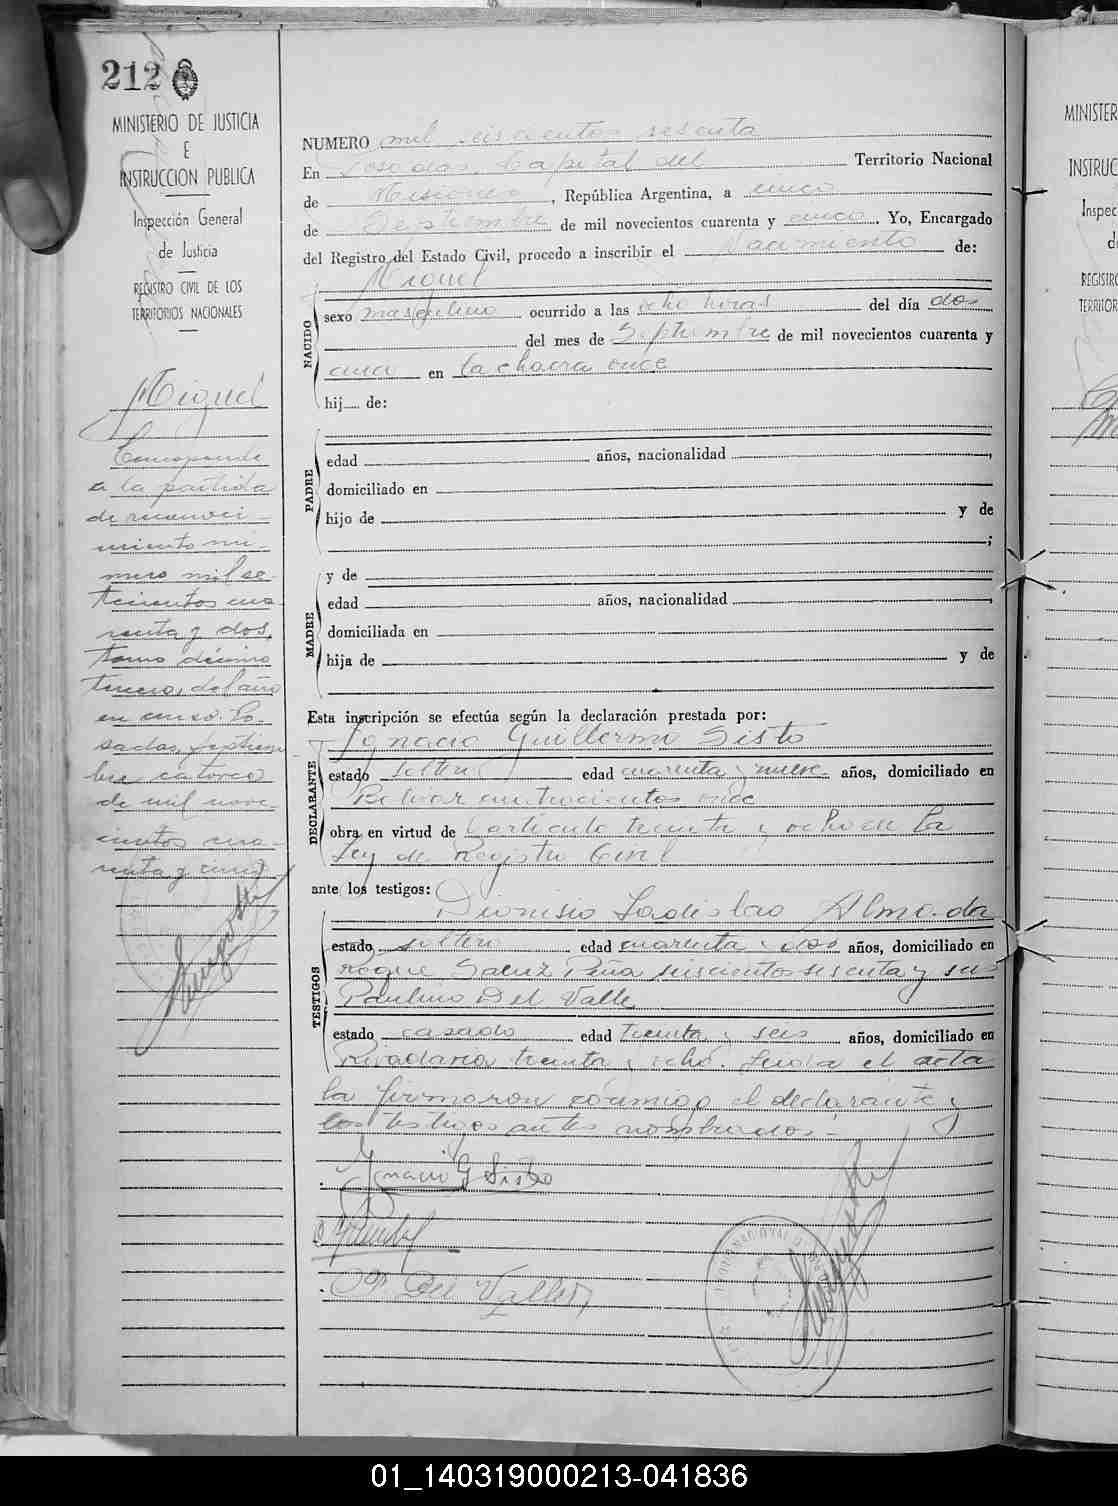 212
MINISTERIO DE JUSTICIA
E
INSTRUCCION PUBLICA
Inspección General
de Justicia
REGISTRO CIVIL DE LOS
TERRITORIOS NACIONALES
Miguel
Corresponde
a la partida
de reconoci-
miento nú-
mero mil se-
tecientos cua-
renta y dos,
tomo décimo
tercero, del año
en curso. Po-
sadas, septiem-
bre catorce
de mil nove-
cientos cua-
renta y cinco
NUMERO mil seiscientos sesenta
En Posadas, Capital del Territorio Nacional
de Misiones, República Argentina, a cinco
de Septiembre de mil novecientos cuarenta y cinco. Yo, Encargado
del Registro del Estado Civil, procedo a inscribir el Nacimiento de:
Miguel
NACIDO
sexo masculino ocurrido a las ocho horas del día dos
del mes de Septiembre de mil novecientos cuarenta y
cinco en la chacra once
hij... de:
PADRE
edad años, nacionalidad ,
domiciliado en
hijo de y de
;
MADRE
y de
edad años, nacionalidad ,
domiciliada en
hija de y de
Esta inscripción se efectúa según la declaración prestada por:
DECLARANTE
Ignacio Guillermo Sisto
estado soltero edad cuarenta y nueve años, domiciliado en
Bolivar cuatrocientos once
obra en virtud de l artículo treinta y ocho de la
Ley de Registro Civil
ante los testigos:
TESTIGOS
Dionisio Ladislao Almeida
estado soltero edad cuarenta y dos años, domiciliado en
roque Saenz Peña seiscientos sesenta y seis
Paulino Del Valle
estado casado edad treinta y seis años, domiciliado en
Rivadavia treinta y ocho. Leida el acta
la firmaron conmigo el declarante y
los testigos antes nombrados.-
Ignacio G Sisto
P. Del Valle
MINISTER
INSTRUC
Inspec
d
REGISTRO
TERRITOR
01_140319000213-041836